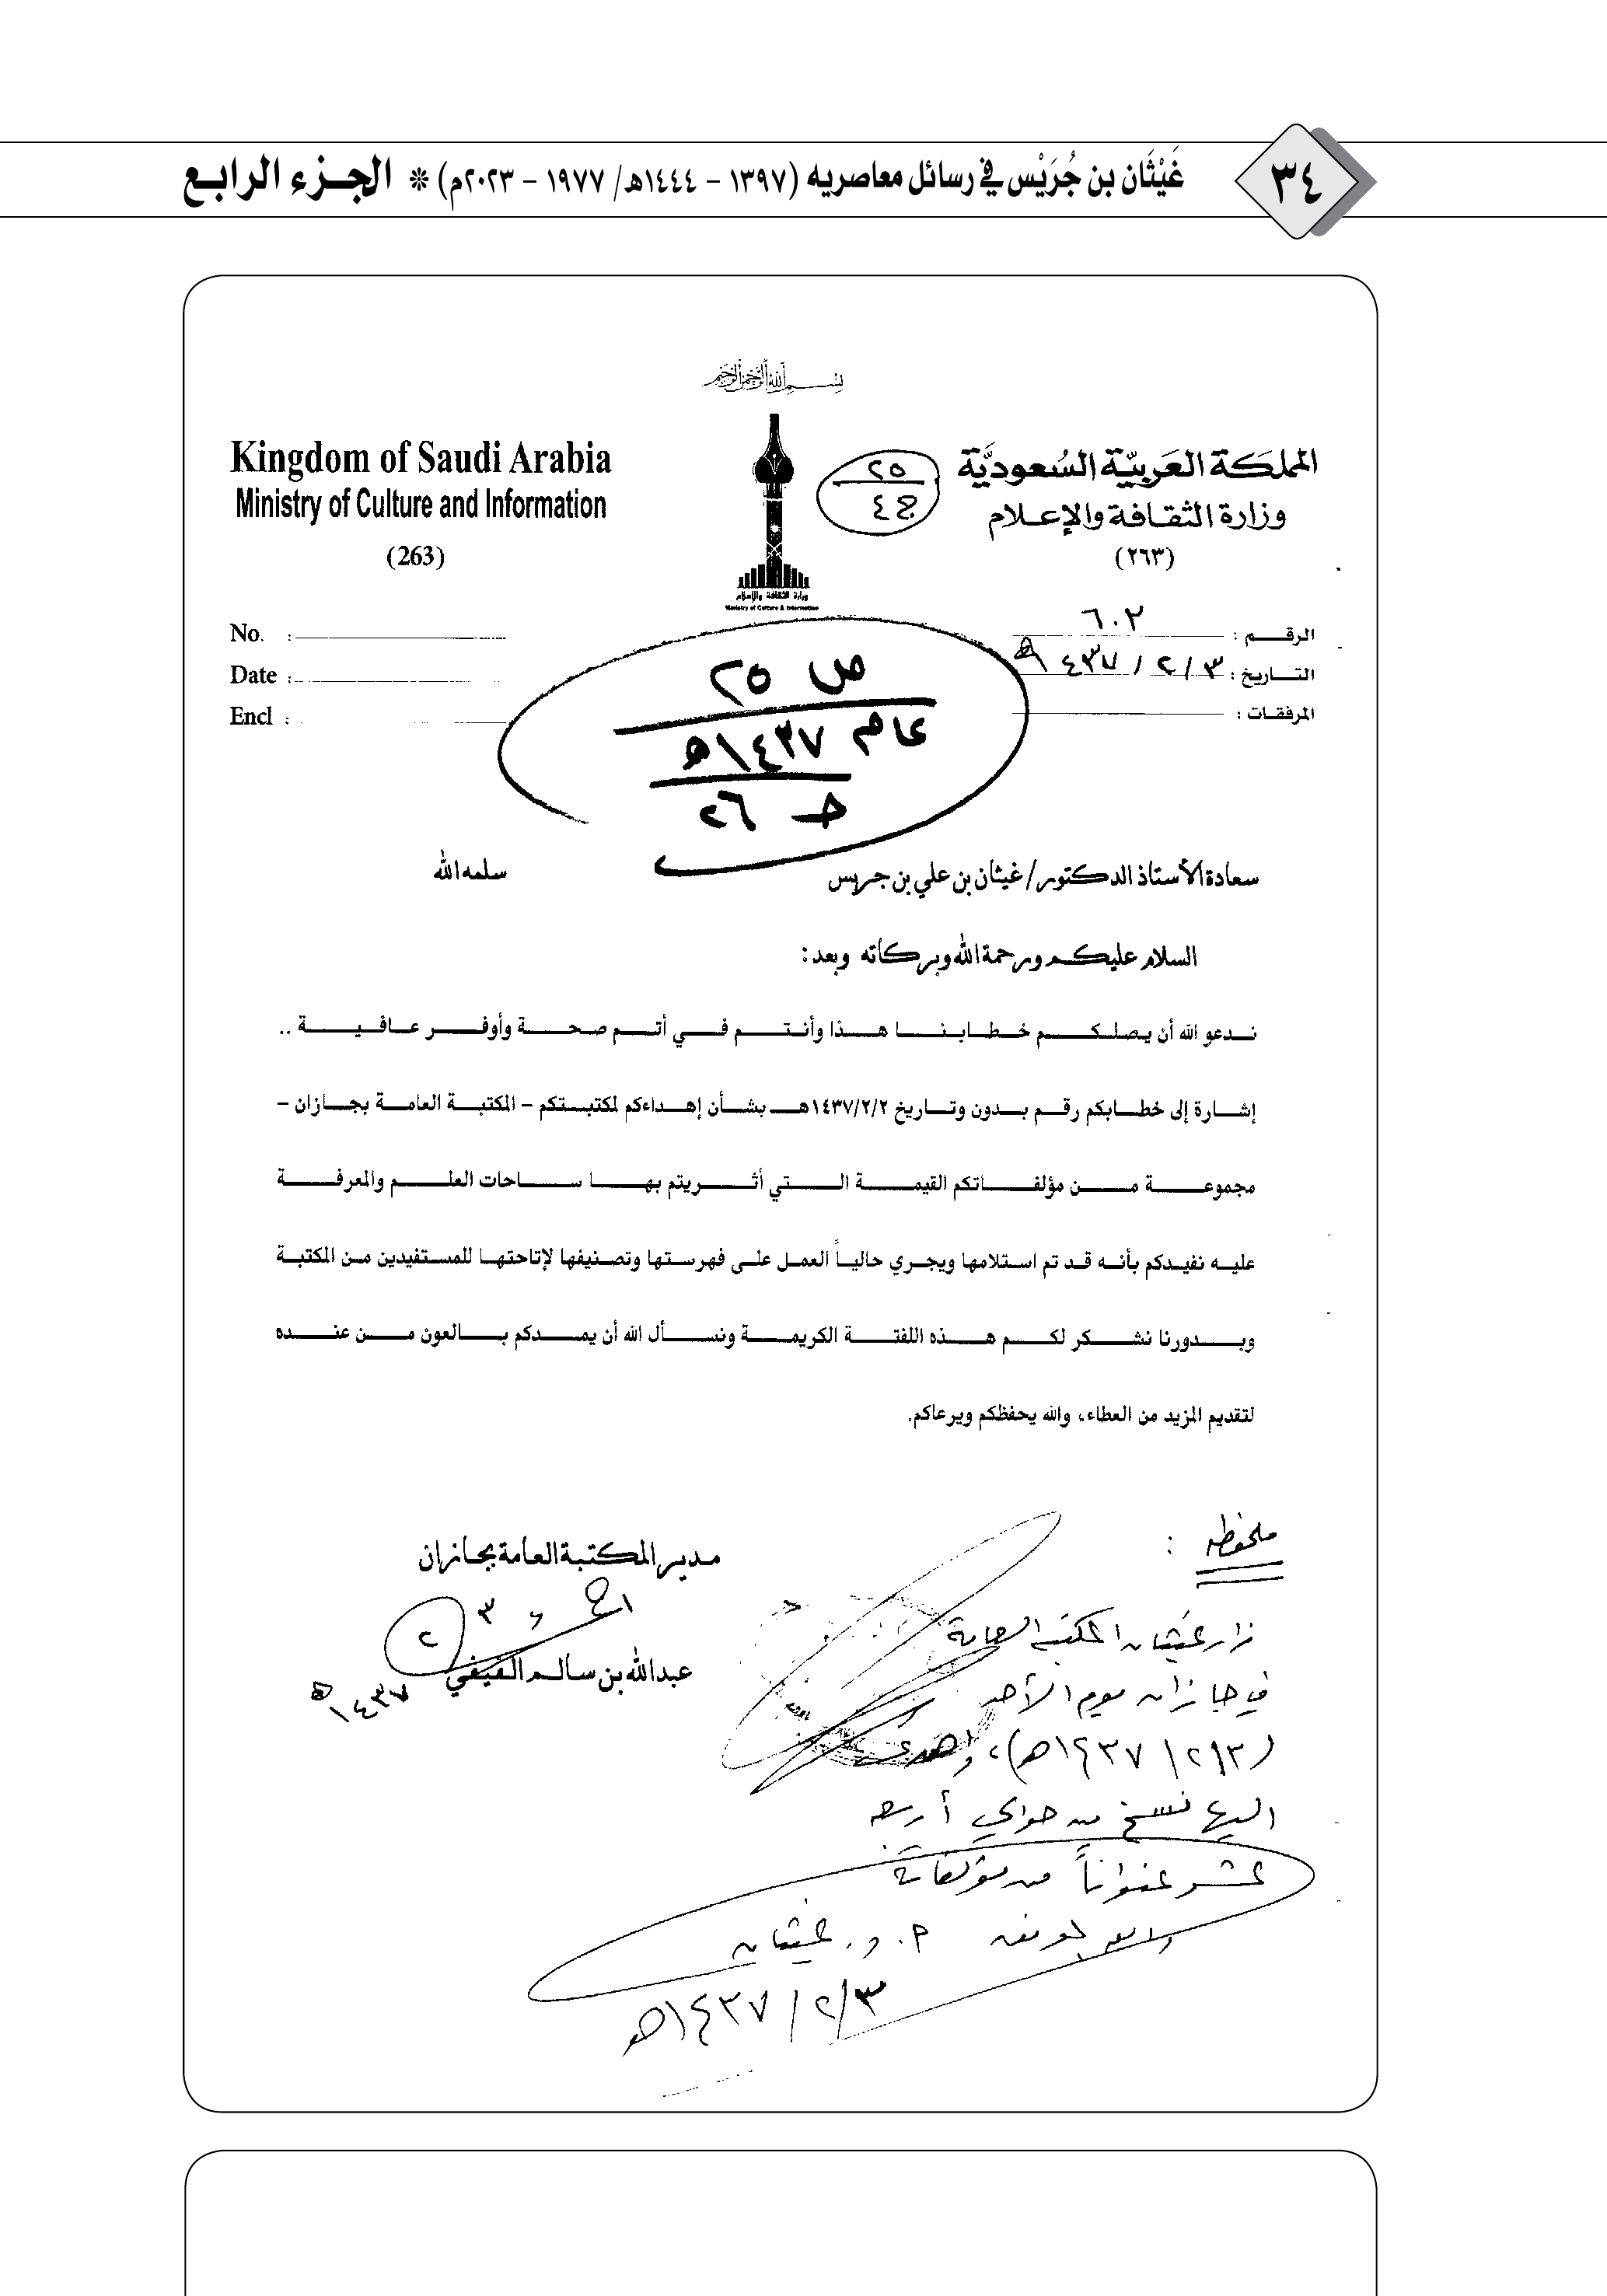 ٣٤
غَيْثَان بن جُرَيْس في رسائل معاصريه (١٣٩٧ – ١٤٤٤هـ/ ١٩٧٧ – ٢٠٢٣م) * الجزء الرابع
بسم الله الرحمن الرحيم
المملكة العربية السعودية
وزارة الثقافة والإعلام
(٢٦٣)
Kingdom of Saudi Arabia
Ministry of Culture and Information
(263)
٢٥
ج ٤
وزارة الثقافة والإعلام
Ministry of Culture & Information
الرقم : ٦٠٢
التاريخ : ٣ / ٢ / ١٤٣٧هـ
المرفقات :
No. :
Date :
Encl :
ص ٢٥
عام ١٤٣٧هـ
حـ ٢٦
سعادة الأستاذ الدكتور/ غيثان بن علي بن جريس سلمه الله
السلام عليكم ورحمة الله وبركاته وبعد:
ندعو الله أن يصلكم خطابنا هذا وأنتم في أتم صحة وأوفر عافية ..
إشارة إلى خطابكم رقم بدون وتاريخ ١٤٣٧/٢/٢هـ بشأن إهداءكم لمكتبتكم – المكتبة العامة بجازان –
مجموعة من مؤلفاتكم القيمة التي أثريتم بها ساحات العلم والمعرفة
عليه نفيدكم بأنه قد تم استلامها ويجري حالياً العمل على فهرستها وتصنيفها لإتاحتها للمستفيدين من المكتبة
وبدورنا نشكر لكم هذه اللفتة الكريمة ونسأل الله أن يمدكم بالعون من عنده
لتقديم المزيد من العطاء، والله يحفظكم ويرعاكم.
مدير المكتبة العامة بجازان
٣
٢
عبدالله بن سالم الفيفي
١٤٣٧هـ
ملحظه :
زار غيثان المكتبة العامة
في جازان يوم الأحد
(٣/٢/١٤٣٧هـ)، وأهدى
اليها نسخ من حوالي أربعة
عشر عنواناً من مؤلفاته
والله الموفق أ. د. غيثان
٣/٢/١٤٣٧هـ